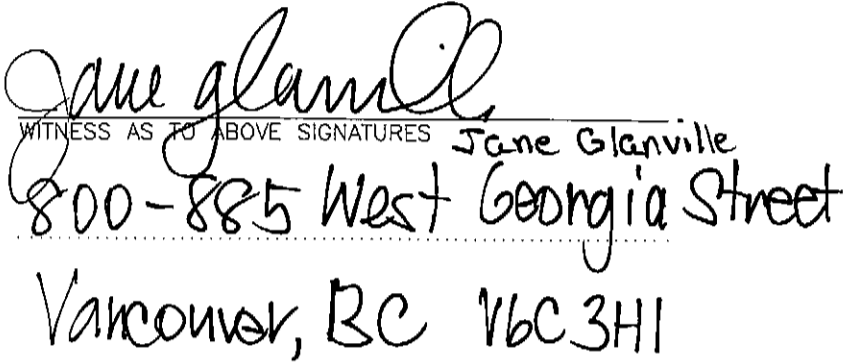 Jane Glanville
WITNESS AS TO ABOVE SIGNATURES Jane Glanville
800-885 West Georgia Street
Vancouver, BC V6C3H1